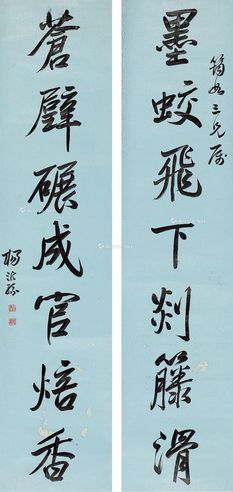 筠如三兄属
墨蛟飛下剡籐滑
蒼壁碾成官焙香
楊沂孫